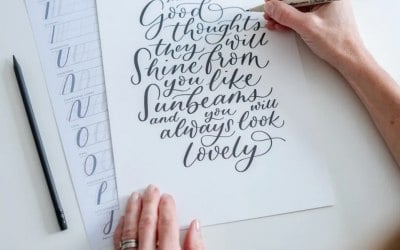 Good
thoughts
they will
Shine from
you like
Sunbeams
and you will
always look
lovely